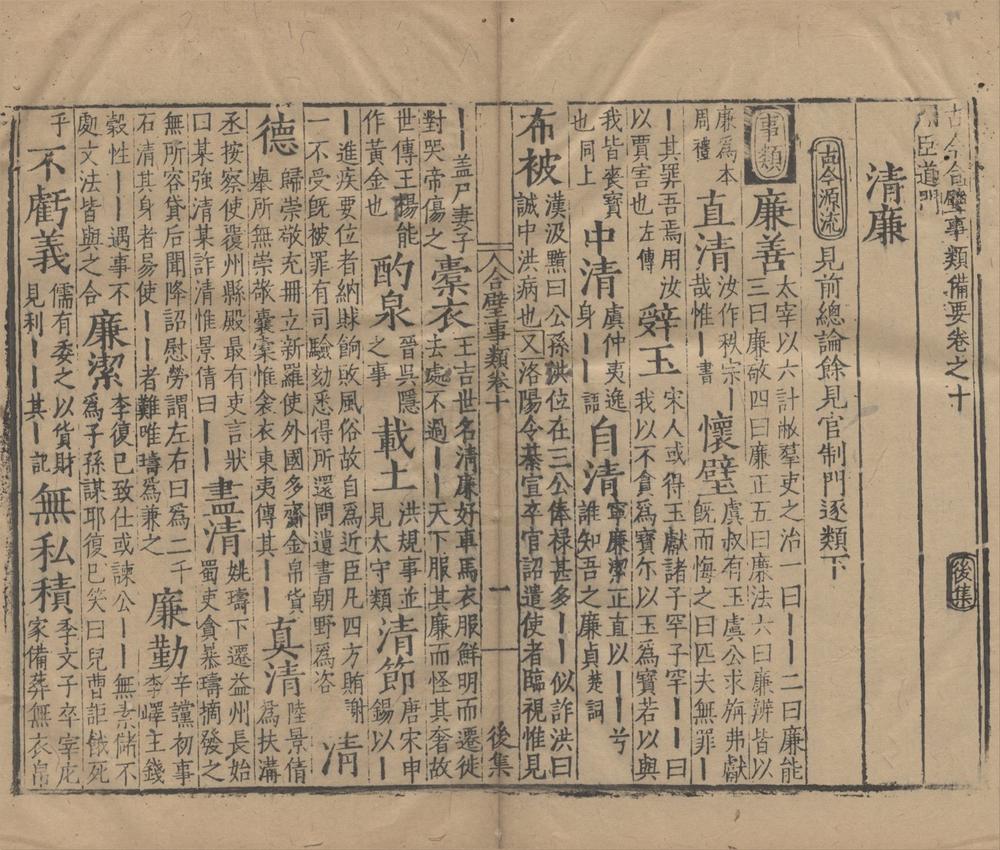 古今合璧事類備要卷之十 後集
臣道門
清廉
古今源流 見前總論餘見官制門逐類下
事類 廉善 太宰以六計敝羣吏之治一曰——二曰廉能三曰廉敬四曰廉正五曰廉法六曰廉辨皆以
廉為本周禮 直清 汝作秩宗—哉惟—書 懷璧 虞叔有玉虞公求旃弗獻既而悔之曰匹夫無罪—
—其罪吾焉用汝以賈害也左傳 辭玉 宋人或得玉獻諸子罕子罕——曰我以不貪為寶尔以玉為寶若以與
我皆喪寶也同上 中清 虞仲夷逸身——語 自清 寧廉潔正直以——兮誰知吾之廉貞楚詞
布被 漢汲黯曰公孫洪位在三公俸禄甚多——似詐洪曰誠中洪病也又洛陽令綦宣卒官詔遣使者臨視惟見
合璧事類卷十 一 後集
——盖尸妻子對哭帝傷之 橐衣 王吉世名清廉好車馬衣服鮮明而遷徙去處不過——天下服其廉而怪其奢故
世傳王揚能作黄金也 酌泉 晉吳隱之事 載土 洪規事並見太守類 清節 唐宋申錫以—
—進疾要位者納賕餉敗風俗故自為近臣凡四方賄謝一不受既被罪有司驗劾悉得所還問遺書朝野為咨 清
德 歸崇敬充冊立新羅使外國多齎金帛貨舉所無崇敬囊橐惟衾衣東夷傳其—— 真清 陸景倩為扶溝
丞按察使覆州縣殿最有吏言狀曰某強清某詐清惟景倩曰—— 盡清 姚璹下遷益州長始蜀吏貪暴璹摘發之
無所容貸后聞降詔慰勞謂左右曰為二千石清其身者易使——者難唯璹為兼之 廉勤 辛讜初事李嶧主錢
穀性——遇事不處文法皆與之合 廉潔 李復已致仕或諫公——無素儲不為子孫謀耶復已笑曰兒曹詎餓死
乎 不虧義 儒有委之以貨財見利——其—記 無私積 季文子卒宰庀家備葬無衣帛